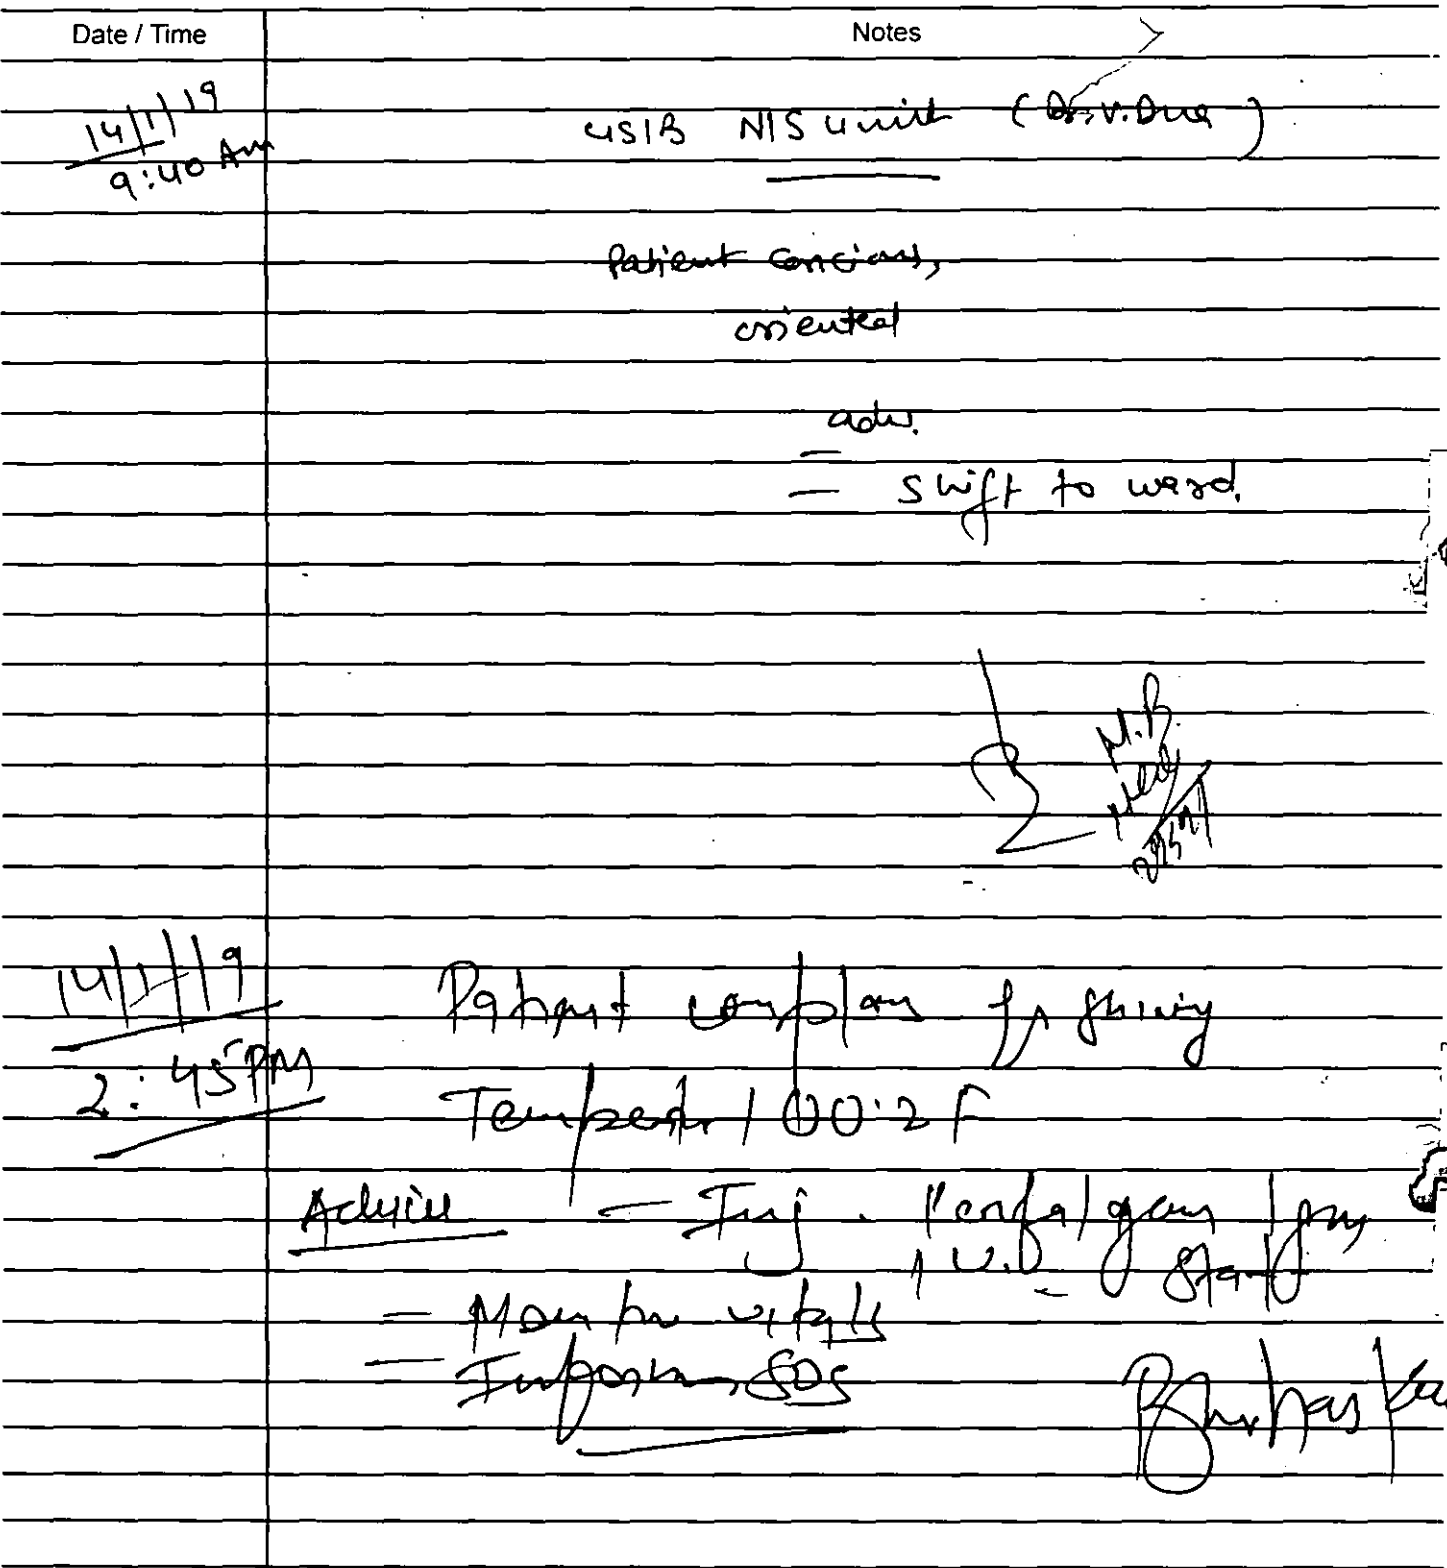 Date / Time Notes
14/1/19
9:40 Am
4S1B N/S unit (Dr. V. Dua)
Patient concious,
oriented
adv.
— Shift to ward.
M.B.
14/1/19
2:45 PM
Patient complan of shiving
100.2 F
Advice — Inj. Perfalgan 1gm
I.V. Stat
— vitals
— Inform SOS